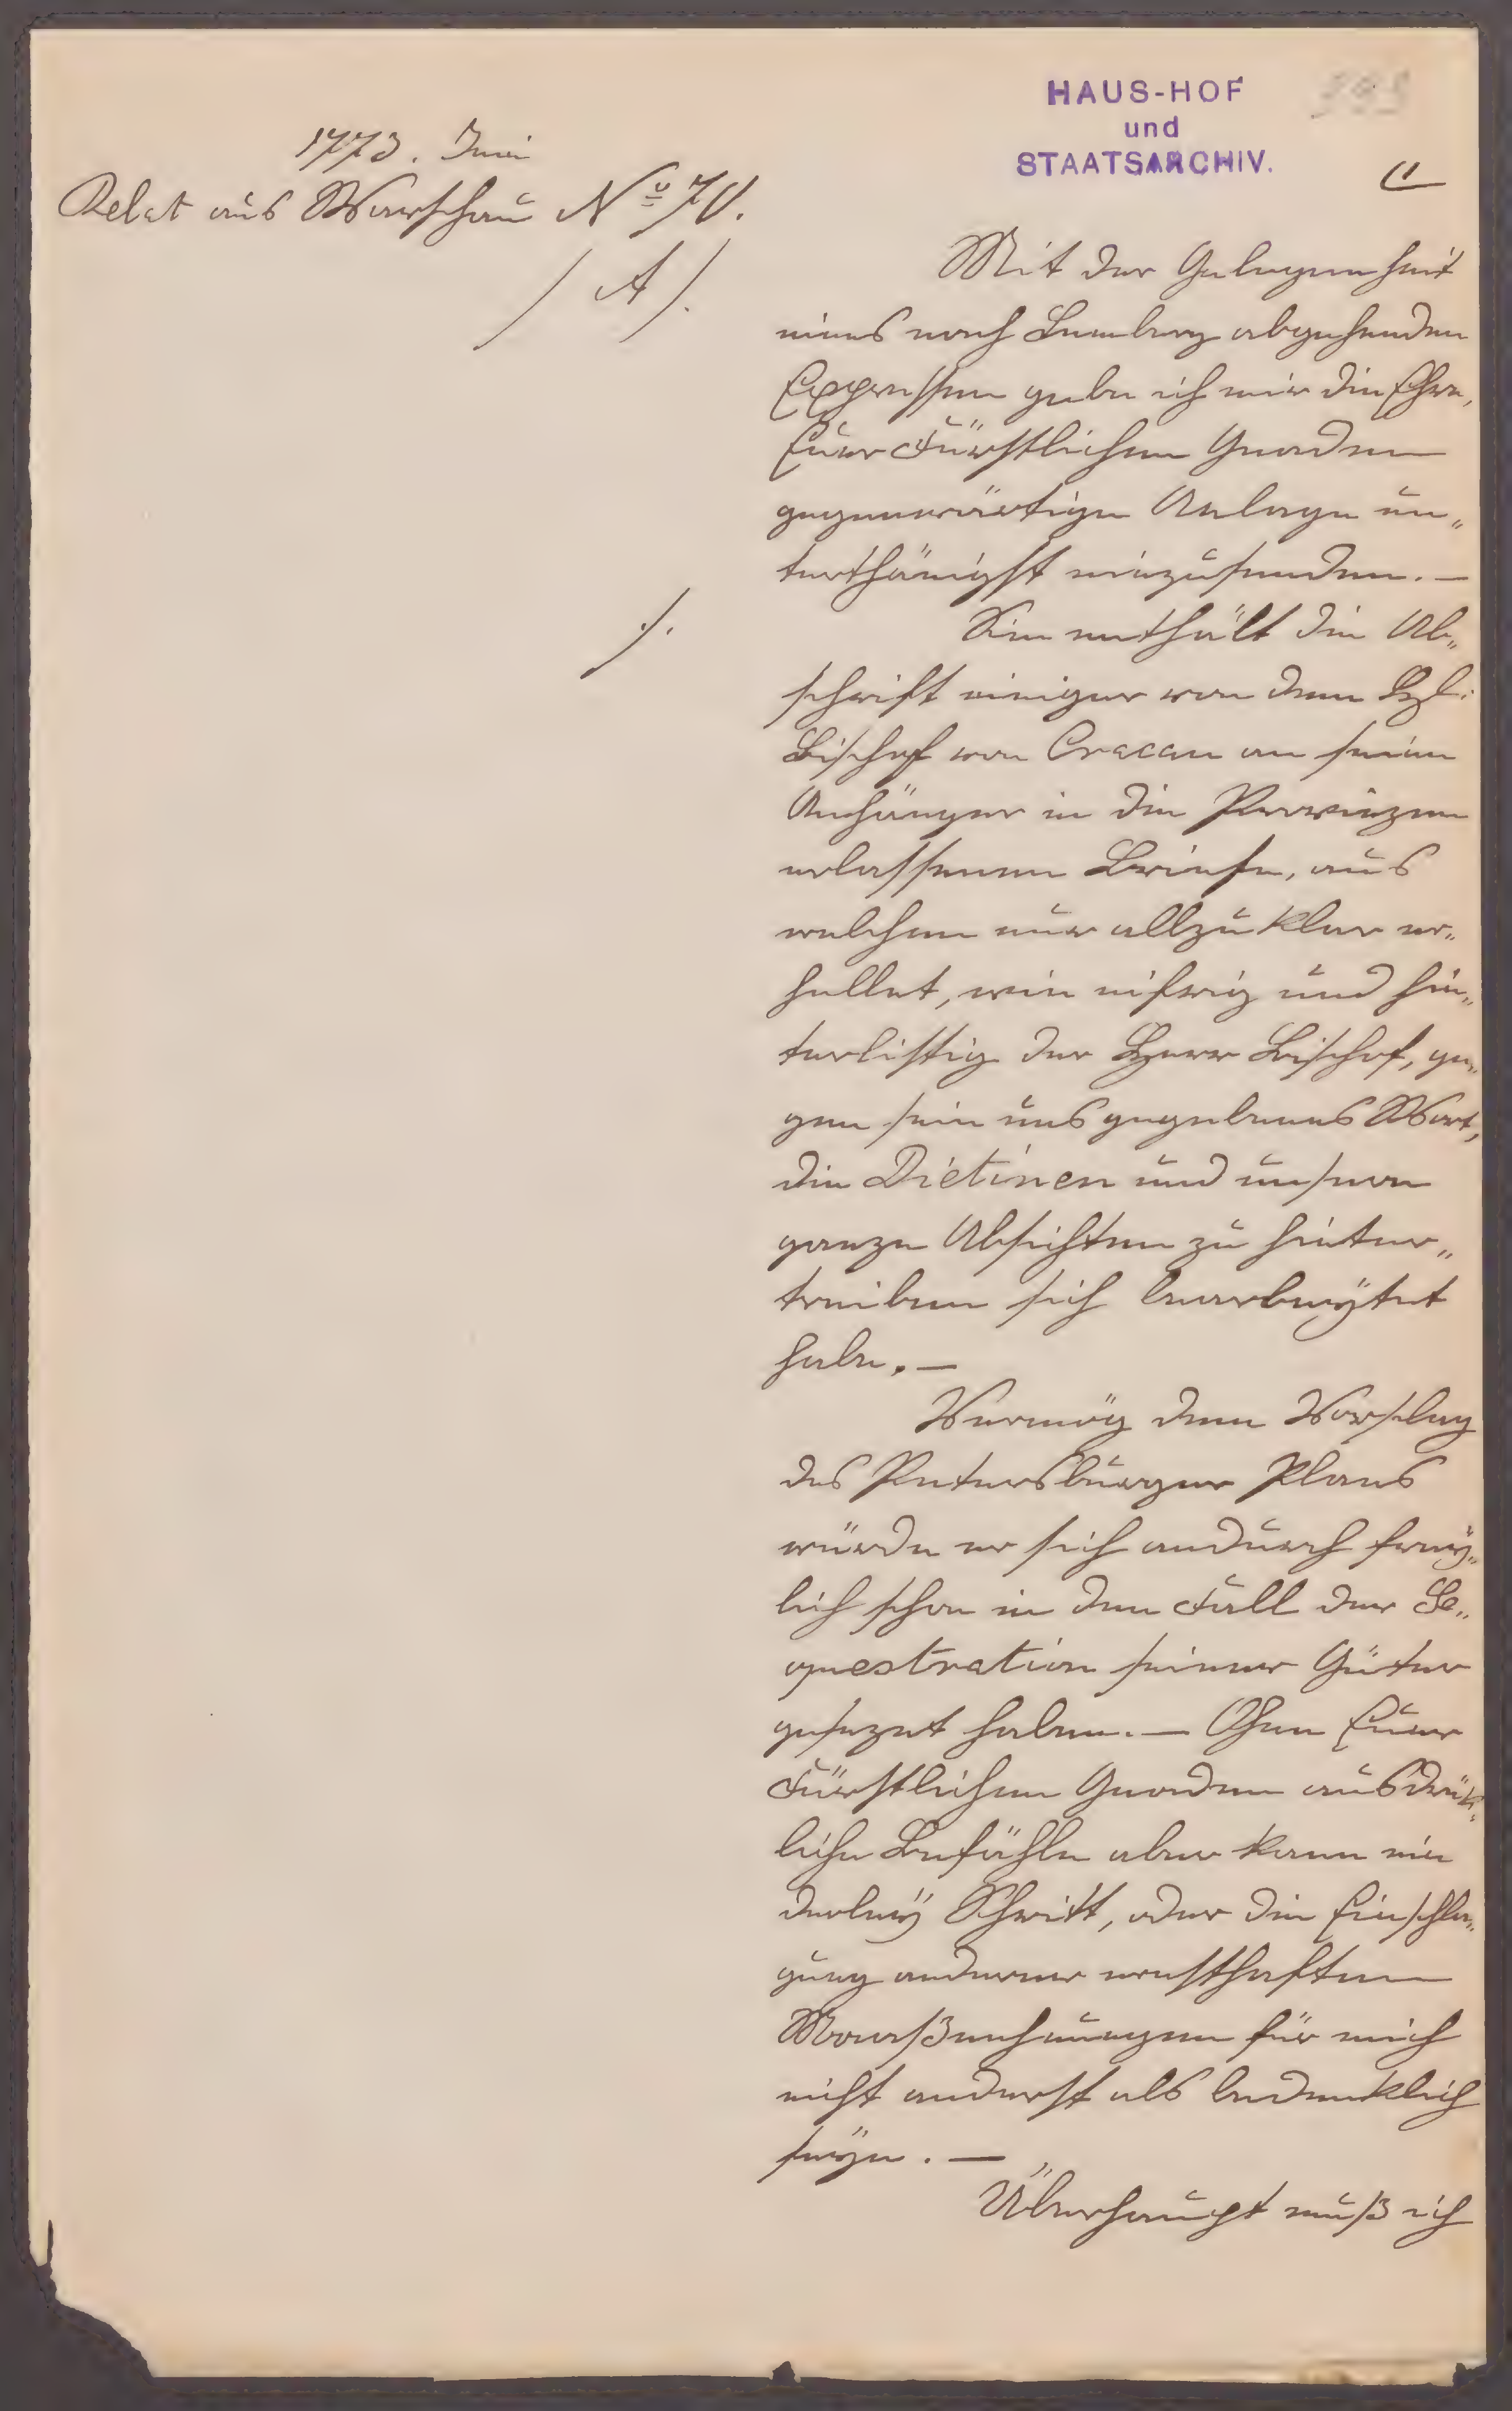 HAUS-HOF
und
STAATSARCHIV.
1773. Juni
Relat aus Warschau No 70.
/A/.
Mit der Gelegenheit
eines nach Lemberg abgehenden
Expressen gebe ich mir die Ehre,
Euer Fürstlichen Gnaden
gegenwärtige Anlage un„
terthänigst einzusenden. —
/.
Sie enthält die Ab„
schrift einiger von dem Hl:
Bischof von Cracau an seine
Anhänger in die Provinzen
erlassenen Briefe, aus
welchen nur allzu klar er„
hellet, wie eifrig und hin„
terlistig der Herr Bischof, ge„
gen sein uns gegebenes Wort,
die Dietinen und unsere
ganze Absichten zu hinter„
treiben sich bearbeÿtet
habe. —
Vermög dem Vorschlag
des Petersburger Plans
würde er sich andurch freÿ„
lich schon in den Fall der Se„
questration seiner Güter
gesezet haben. — Ohne Euer
Fürstlichen Gnaden ausdrük„
liche Befähle aber kann ein
derleÿ Schritt, oder die Einschla„
gung anderer ernsthaften
Maaßnehmungen für mich
nicht anderst als bedenklich
seÿn. —
Überhaupt muß ich